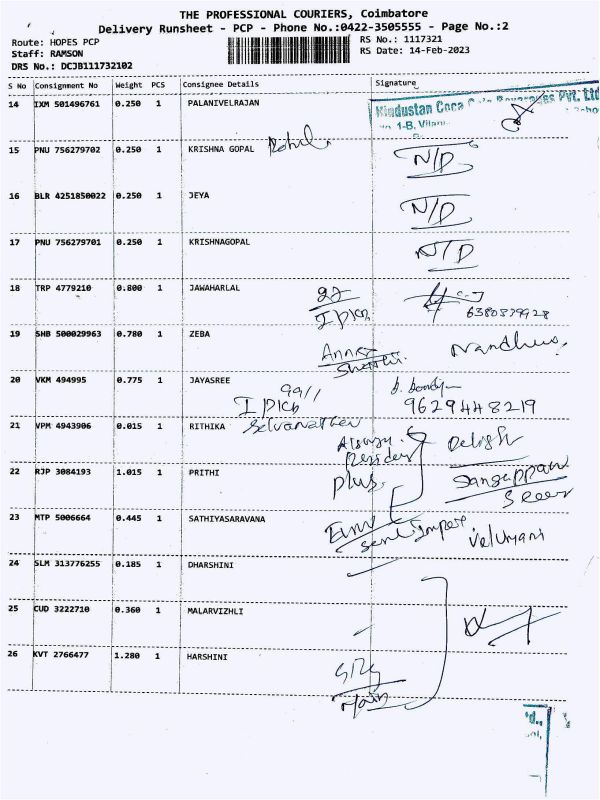 THE PROFESSIONAL COURIERS, Coimbatore
Delivery Runsheet - PCP - Phone No.:0422-3505555 - Page No.:2
Route: HOPES PCP
Staff: RAMSON
DRS No.: DCJB111732102
RS No.: 1117321
RS Date: 14-Feb-2023
S No Consignment No Weight PCS Consignee Details Signature
14 IXM 501496761 0.250 1 PALANIVELRAJAN
Hindustan Coca Pvt. Ltd
1-B,
15 PNU 756279702 0.250 1 KRISHNA GOPAL N/D
16 BLR 4251850022 0.250 1 JEYA N/D
17 PNU 756279701 0.250 1 KRISHNAGOPAL N/D
18 TRP 4779210 0.800 1 JAWAHARLAL
19 SHB 500029963 0.780 1 ZEBA
20 VKM 494995 0.775 1 JAYASREE
9629448219
21 VPM 4943906 0.015 1 RITHIKA
22 RJP 3084193 1.015 1 PRITHI
plus
23 MTP 5006664 0.445 1 SATHIYASARAVANA
Velumani
24 SLM 313776255 0.185 1 DHARSHINI
25 CUD 3222710 0.360 1 MALARVIZHLI
26 KVT 2766477 1.280 1 HARSHINI
Main